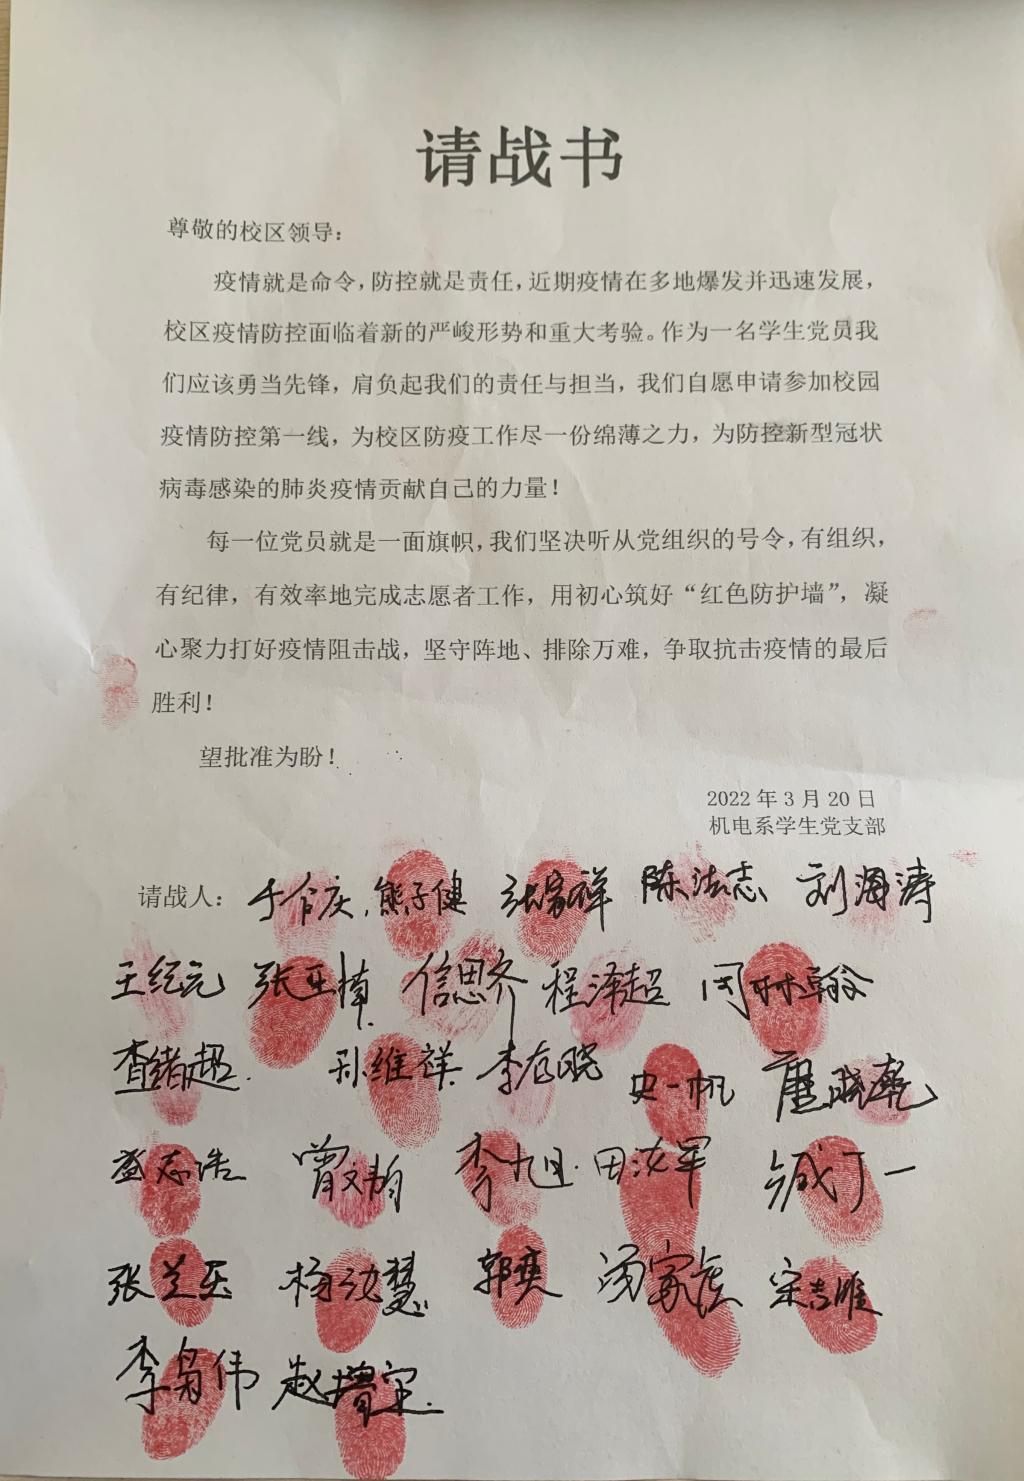 请战书
尊敬的校区领导：
疫情就是命令，防控就是责任，近期疫情在多地爆发并迅速发展，
校区疫情防控面临着新的严峻形势和重大考验。作为一名学生党员我
们应该勇当先锋，肩负起我们的责任与担当，我们自愿申请参加校园
疫情防控第一线，为校区防疫工作尽一份绵薄之力，为防控新型冠状
病毒感染的肺炎疫情贡献自己的力量！
每一位党员就是一面旗帜，我们坚决听从党组织的号令，有组织，
有纪律，有效率地完成志愿者工作，用初心筑好“红色防护墙”，凝
心聚力打好疫情阻击战，坚守阵地、排除万难，争取抗击疫情的最后
胜利！
望批准为盼！
2022年3月20日
机电系学生党支部
请战人： 熊子健 张家祥 陈法志 刘海涛
王纪元 张亚楠 信思齐 程泽超 闫林翰
查绪超 孙维祥 李存晓 史一帆 瞿晓乾
盛志浩 曾文韵 李旭 田汝军 臧丁一
张兰玉 杨汝慧 郭奕 宋志雕
赵增宝